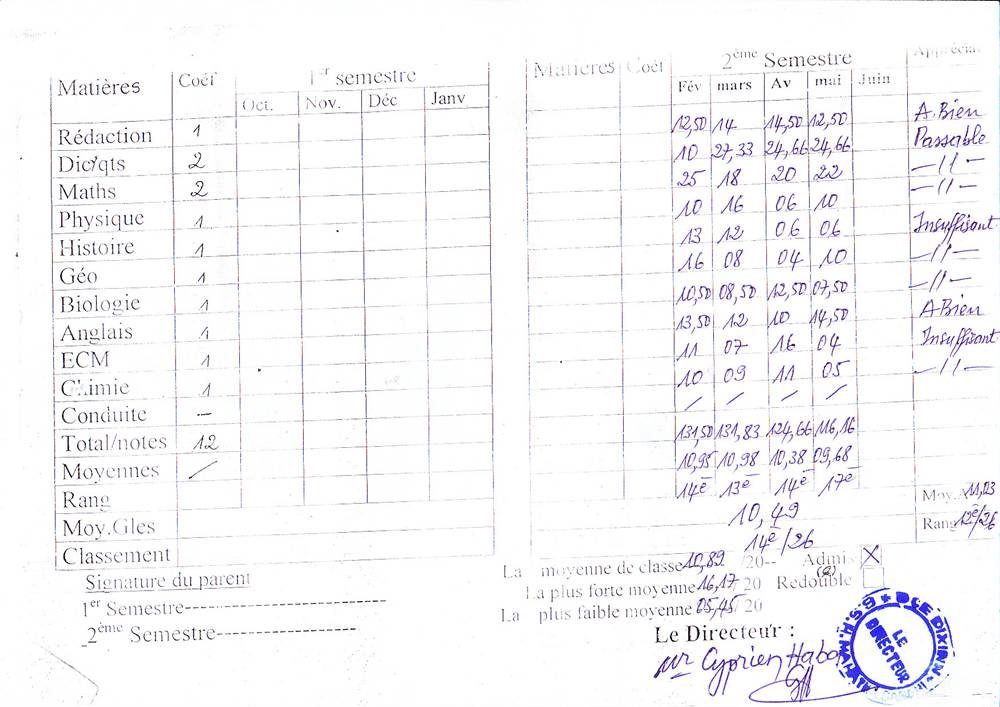 Matières Coéf 1er semestre
Oct. Nov. Déc Janv
Rédaction 1
Dic/qts 2
Maths 2
Physique 1
Histoire 1
Géo 1
Biologie 1
Anglais 1
ECM 1
Chimie 1
Conduite –
Total/notes 12
Moyennes /
Rang
Moy.Gles
Classement
Signature du parent
1er Semestre---------------------------
2ème Semestre-------------------
Matières Coéf 2ème Semestre Apprécia
Fév mars Av mai Juin
12,50 14 14,50 12,50 A.Bien
10 27,33 24,66 24,66 Passable
25 18 20 22 –//–
10 16 06 10 –//–
13 12 06 06 Insuffisant
16 08 04 10 –//–
10,50 08,50 12,50 07,50 –//–
13,50 12 10 14,50 A Bien
11 07 16 04 Insuffisant
10 09 11 05 –//–
/ / / /
131,50 131,83 124,66 116,16
10,95 10,98 10,38 09,68
14e 13e 14e 17e Moy.A 11,03
10,49 Rang 12e/26
14e/26
La moyenne de classe 10,89 /20-- Admis (e) X
La plus forte moyenne 16,17/ 20 Redouble
La plus faible moyenne 05,45/ 20
Le Directeur :
Mr Cyprien Habo
LE DIRECTEUR
DSE DIXINN